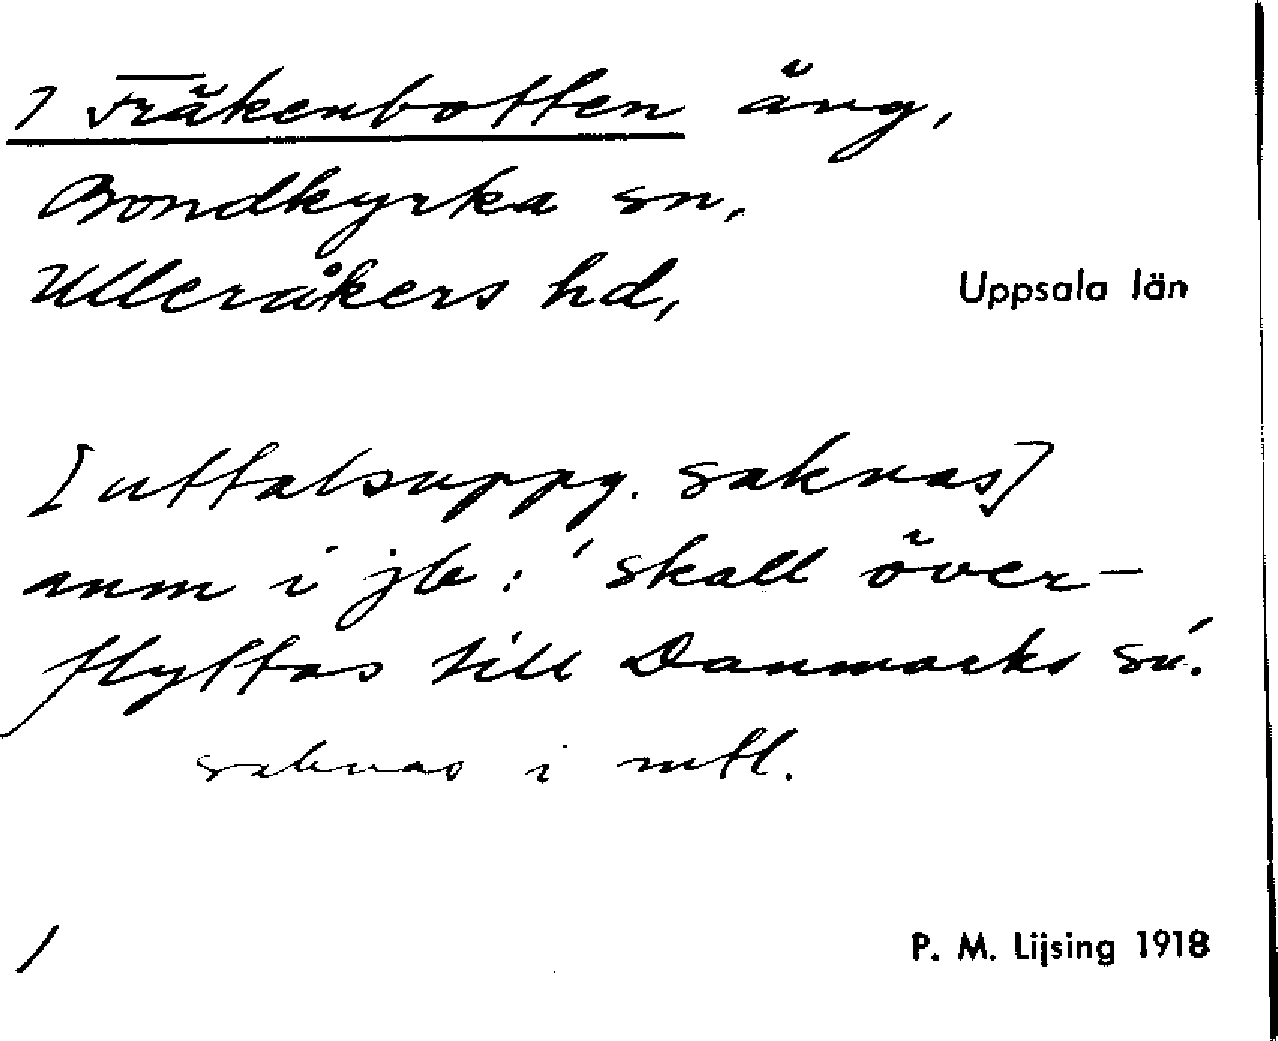 7 Fräkenbotten äng,
Bondkyrka sn,
Ulleråkers hd, Uppsala län
[uttalsuppg. saknas]
anm i jb: 'skall över-
flyttas till Danmarks sn'.
saknas i mtl.
/
P. M. Lijsing 1918